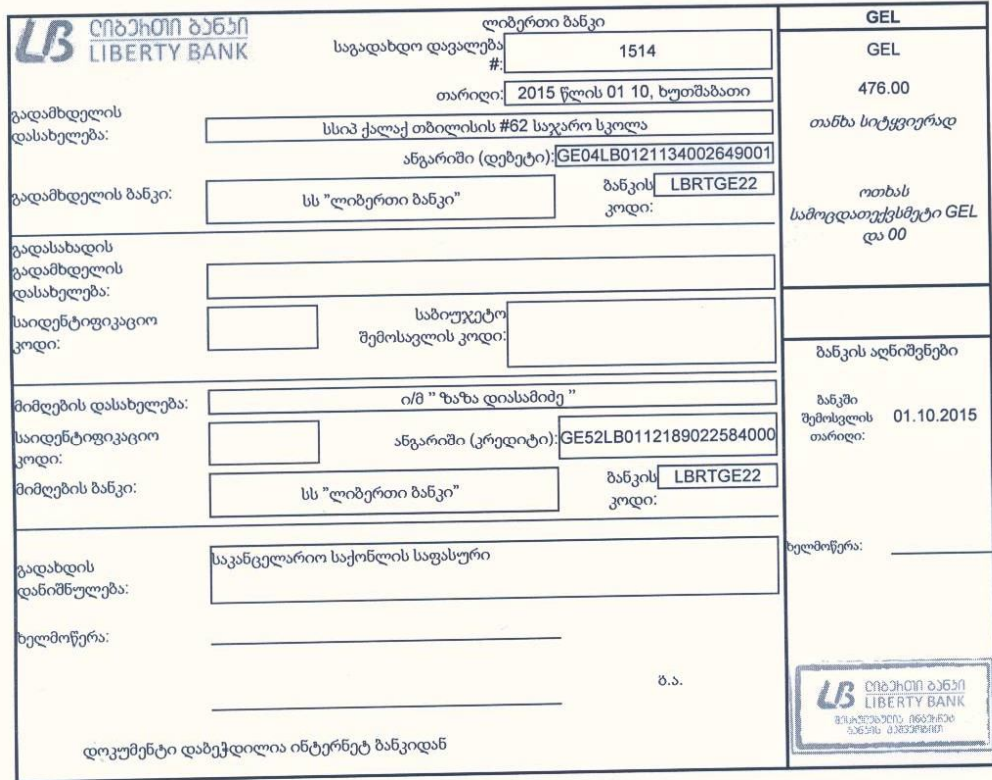 ლიბერთი ბანკი
LIBERTY BANK
ლიბერთი ბანკი
საგადახდო დავალება #: 1514
თარიღი: 2015 წლის 01 10, ხუთშაბათი
გადამხდელის დასახელება: სსიპ ქალაქ თბილისის #62 საჯარო სკოლა
ანგარიში (დებეტი): GE04LB0121134002649001
გადამხდელის ბანკი: სს "ლიბერთი ბანკი"
ბანკის კოდი: LBRTGE22
გადასახადის გადამხდელის დასახელება:
საიდენტიფიკაციო კოდი:
საბიუჯეტო შემოსავლის კოდი:
მიმღების დასახელება: ი/მ " ზაზა დიასამიძე "
საიდენტიფიკაციო კოდი:
ანგარიში (კრედიტი): GE52LB0112189022584000
მიმღების ბანკი: სს "ლიბერთი ბანკი"
ბანკის კოდი: LBRTGE22
გადახდის დანიშნულება: საკანცელარიო საქონლის საფასური
ხელმოწერა:
ბ.ა.
დოკუმენტი დაბეჭდილია ინტერნეტ ბანკიდან
GEL
GEL
476.00
თანხა სიტყვიერად
ოთხას
სამოცდათექვსმეტი GEL
და 00
ბანკის აღნიშვნები
ბანკში შემოსვლის თარიღი: 01.10.2015
ხელმოწერა:
ლიბერთი ბანკი
LIBERTY BANK
შესრულებულია ინტერნეტ
ბანკის მეშვეობით